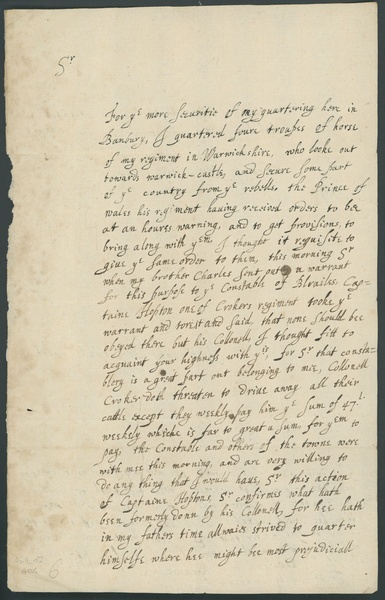 Sr
For ye more securitie of my quartering here in
Banbury, I quartered foure troupes of horse
of my regiment in Warwickshire, who looke out
towards warwick-castle, and secure some part
of ye country from ye rebells, the Prince of
wales his regiment having received orders to bee
at an houres warning, and to get provisions, to
bring along with yem I thought it requisite to
give ye same order to them, this morning Sr
when my brother Charles sent out a warrant
for this purpose to ye Constable of Brailes Cap=
taine Hopton one of Crokers regiment tooke ye
warrant and and said, that none should bee
obeyed there but his Collonell, I thought fitt to
acquaint your highness with ys, for Sr that consta=
blery is a great part out belonging to mee, Collonell
Croker doth threaten to drive away all their
cattle except they weekly pay him ye sum of 47.l.
weekly whiche is far to great a sum, for yem to
pay, the Constable and others of the towne were
with mee this morning, and are very willing to
do any thing that I would have, Sr this action
of Captaine Hoptons Sr confirmes what hath
been formerly donn by his Collonell, for hee hath
in my fathers time allwaies strived to quarter
himselfe where hee might be most prejudiciall
6